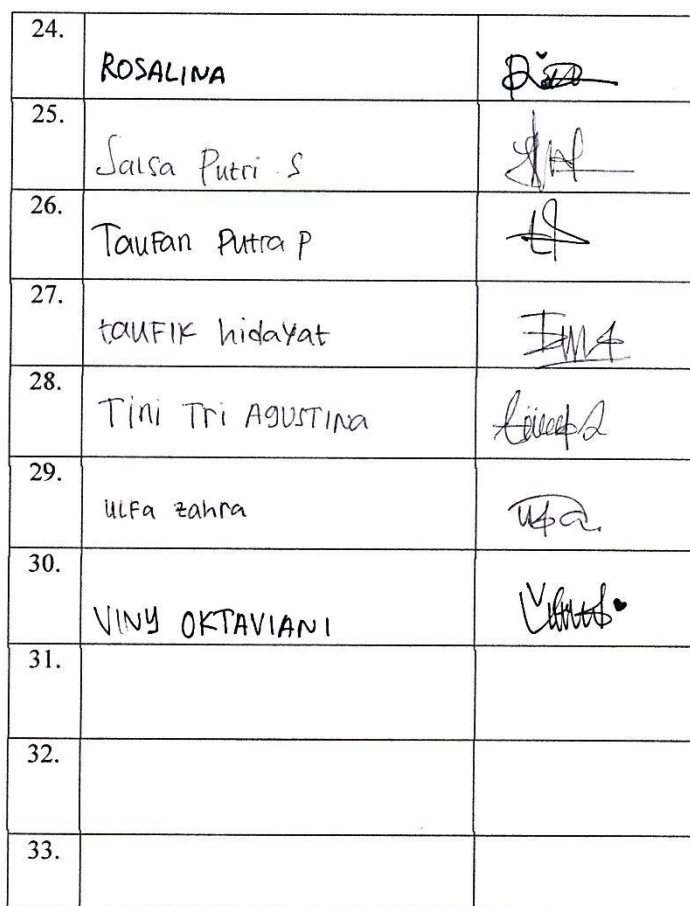 24.
ROSALINA
25.
Salsa Putri .S
26.
Taufan Putra P
27.
taufik hidayat
28.
Tini Tri AGUSTINA
29.
ulfa zahra
30.
VINY OKTAVIANI
31.
32.
33.